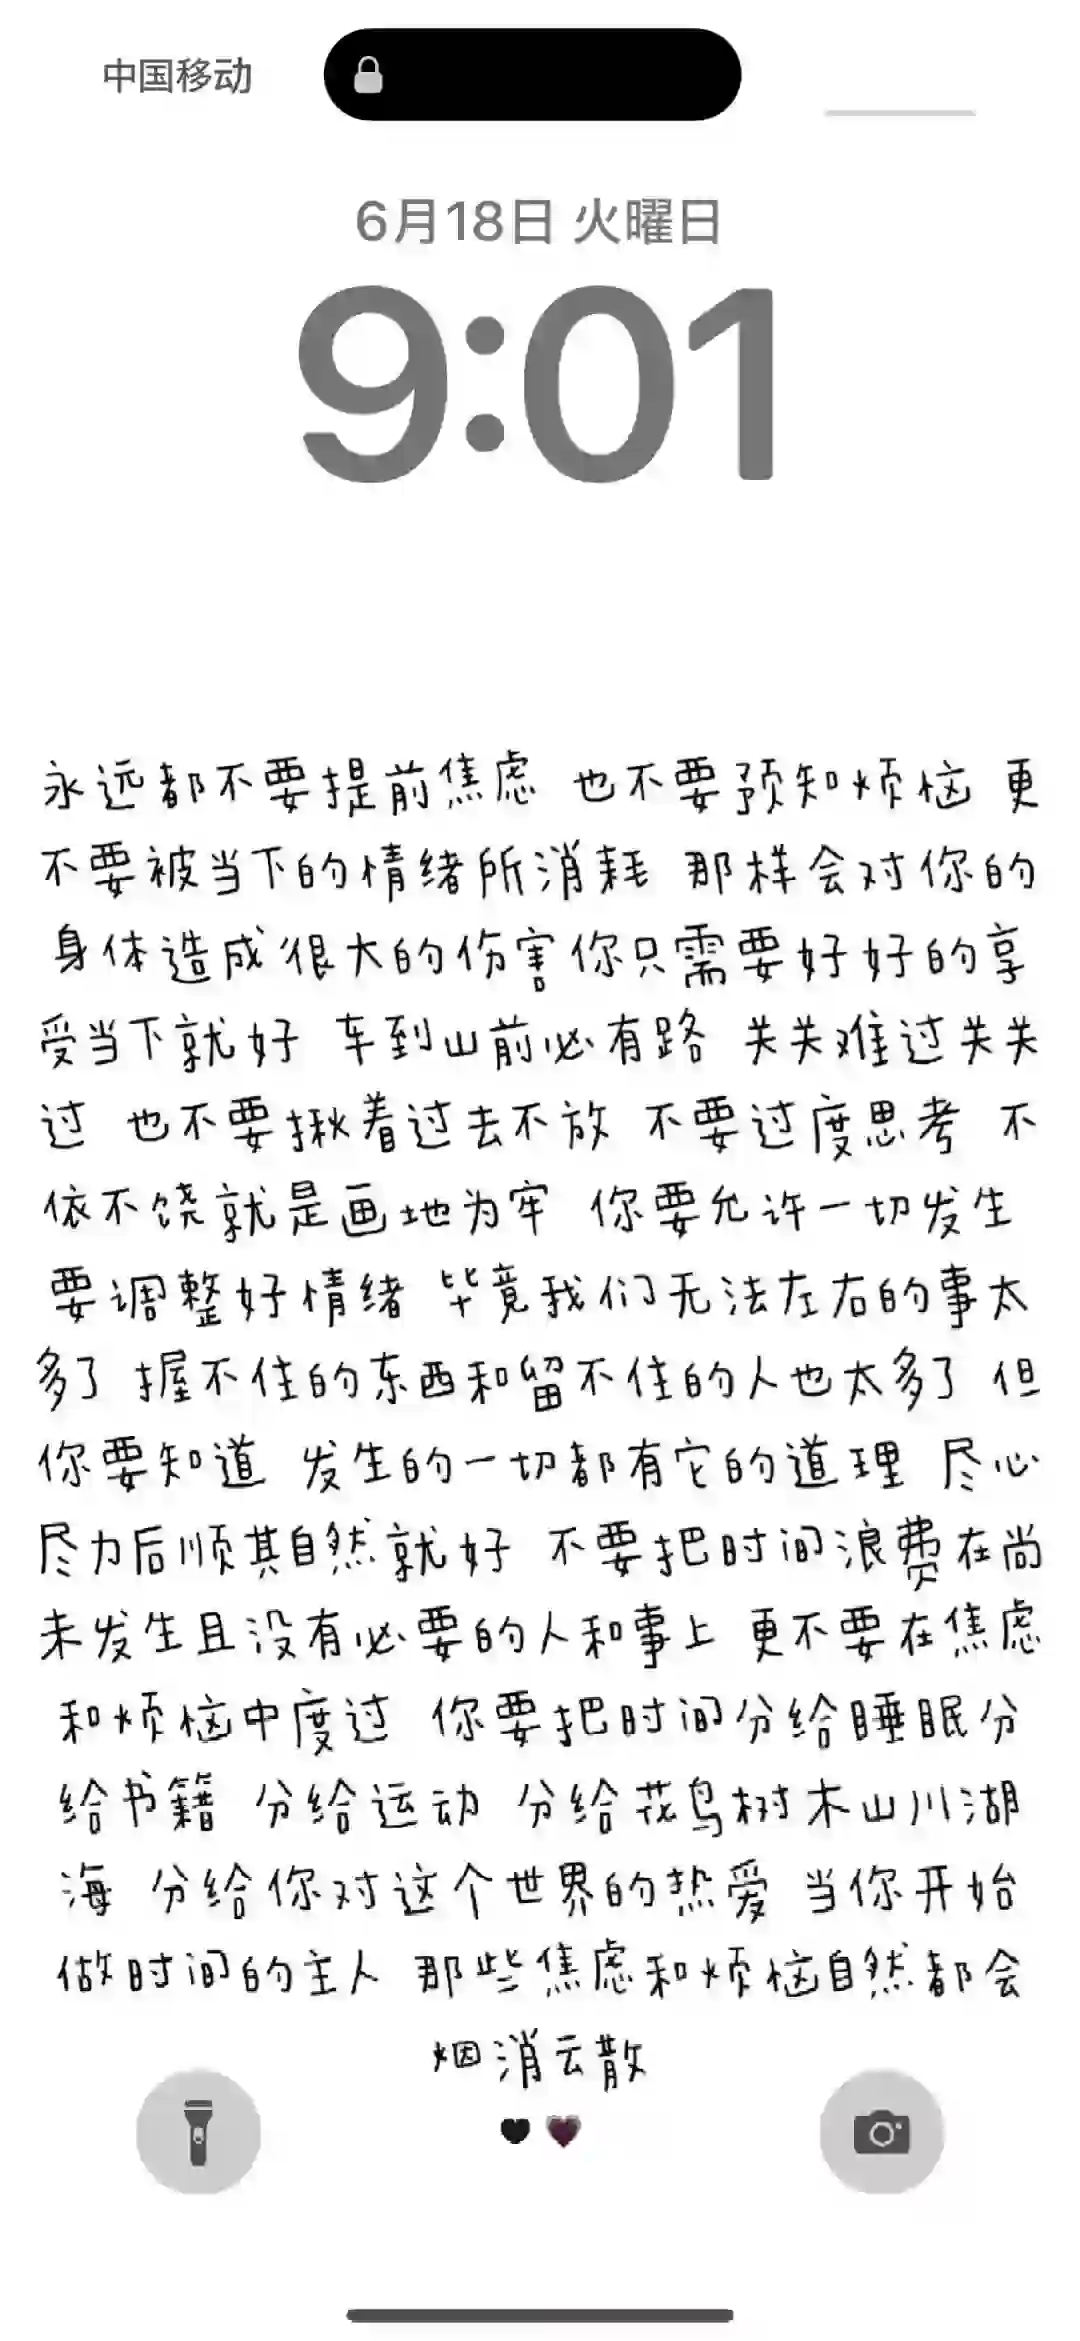 中国移动
6月18日 火曜日
9:01
永远都不要提前焦虑 也不要预知烦恼 更
不要被当下的情绪所消耗 那样会对你的
身体造成很大的伤害你只需要好好的享
受当下就好 车到山前必有路 关关难过关关
过 也不要揪着过去不放 不要过度思考 不
依不饶就是画地为牢 你要允许一切发生
要调整好情绪 毕竟我们无法左右的事太
多了 握不住的东西和留不住的人也太多了 但
你要知道 发生的一切都有它的道理 尽心
尽力后顺其自然就好 不要把时间浪费在尚
未发生且没有必要的人和事上 更不要在焦虑
和烦恼中度过 你要把时间分给睡眠分
给书籍 分给运动 分给花鸟树木山川湖
海 分给你对这个世界的热爱 当你开始
做时间的主人 那些焦虑和烦恼自然都会
烟消云散